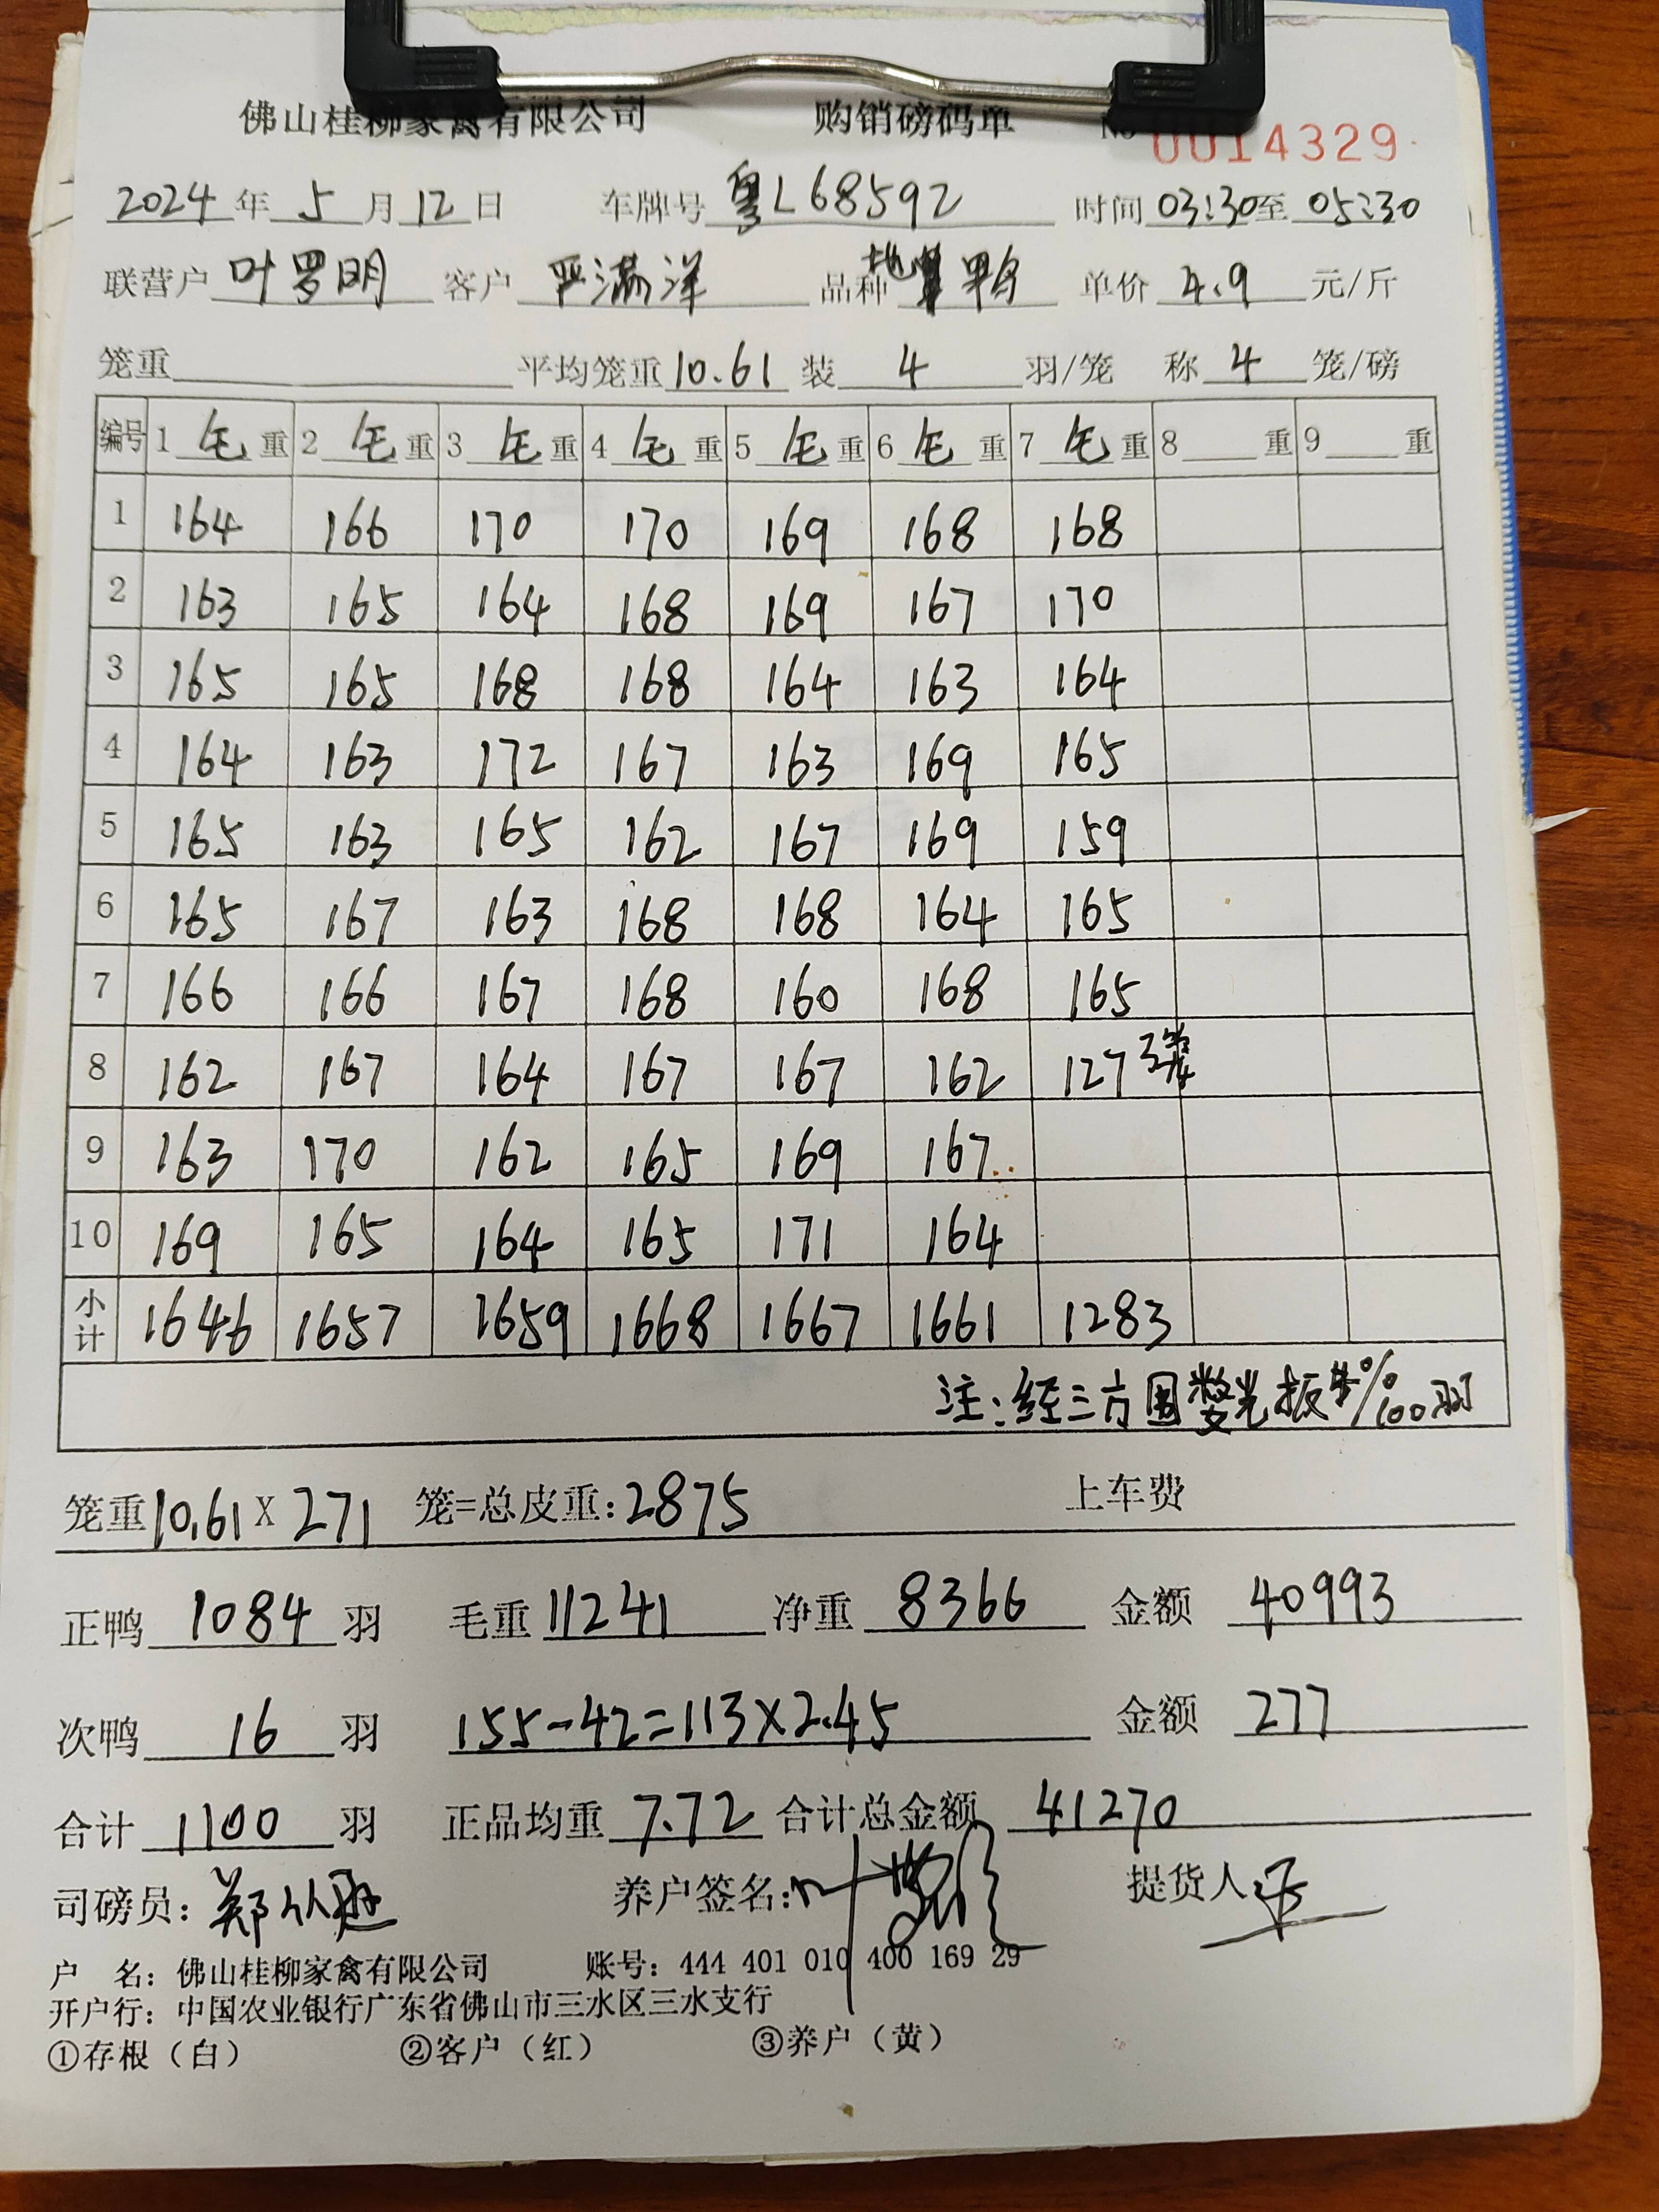 佛山桂柳家禽有限公司 购销磅码单 No 0014329
2024年5月12日 车牌号 粤L68592 时间 03:30至 05:30
联营户 叶罗明 客户 严满洋 品种 鸭 单价 4.9 元/斤
笼重 平均笼重 10.61 装 4 羽/笼 称 4 笼/磅
编号 1 毛 重 2 毛 重 3 毛 重 4 毛 重 5 毛 重 6 毛 重 7 毛 重 8 重 9 重
1 164 166 170 170 169 168 168
2 163 165 164 168 169 167 170
3 165 165 168 168 164 163 164
4 164 163 172 167 163 169 165
5 165 163 165 162 167 169 159
6 165 167 163 168 168 164 165
7 166 166 167 168 160 168 165
8 162 167 164 167 167 162 127 3笼
9 163 170 162 165 169 167
10 169 165 164 165 171 164
小计 1646 1657 1659 1668 1667 1661 1283
注:经三方 100羽
笼重 10.61 X 271 笼=总皮重: 2875 上车费
正鸭 1084 羽 毛重 11241 净重 8366 金额 40993
次鸭 16 羽 155-42=113×2.45 金额 277
合计 1100 羽 正品均重 7.72 合计总金额 41270
司磅员: 郑 养户签名: 叶 提货人
户 名: 佛山桂柳家禽有限公司 账号: 444 401 010 400 169 29
开户行: 中国农业银行广东省佛山市三水区三水支行
①存根（白） ②客户（红） ③养户（黄）